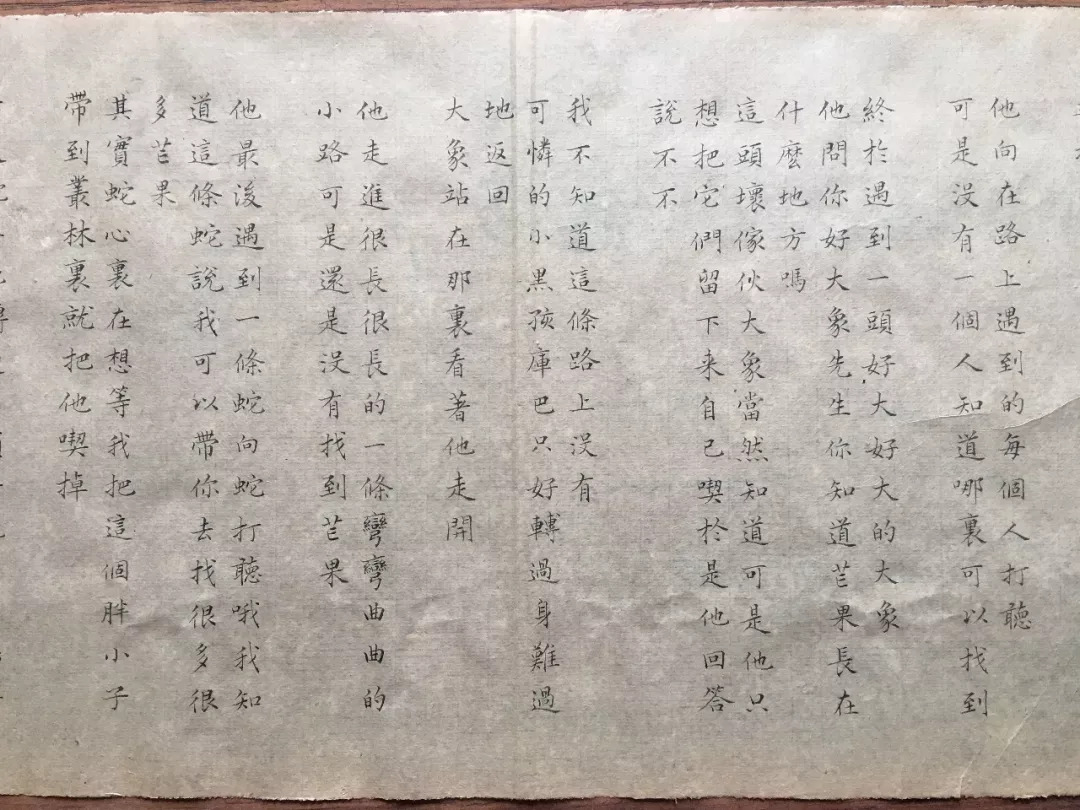 他向在路上遇到的每個人打聽
可是没有一個人知道哪裏可以找到
終於遇到一頭好大好大的大象
他問你好大象先生你知道芒果長在
什麼地方嗎
這頭壞傢伙大象當然知道可是他只
想把它們留下来自己喫於是他回答
說不不
我不知道這條路上没有
可憐的小黑孩庫巴只好轉過身難過
地返回
大象站在那裏看著他走開
他走進很長很長的一條彎彎曲曲的
小路可是還是没有找到芒果
他最後遇到一條蛇向蛇打聽哦我知
道這條蛇說我可以带你去找很多很
多芒果
其實蛇心裏在想等我把這個胖小子
帶到叢林裏就把他喫掉